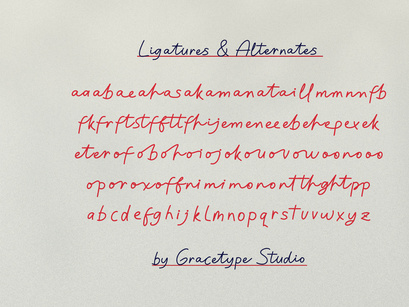 Ligatures & Alternates
aaabaeahasakamanataillmmnnfb
fkfrftstffttfhijemeneeebehepexek
eterofobohoiojokouovowoonooo
oporoxoffnimimonontthghtpp
abcdefghijklmnopqrstuvwxyz
by Gracetype Studio